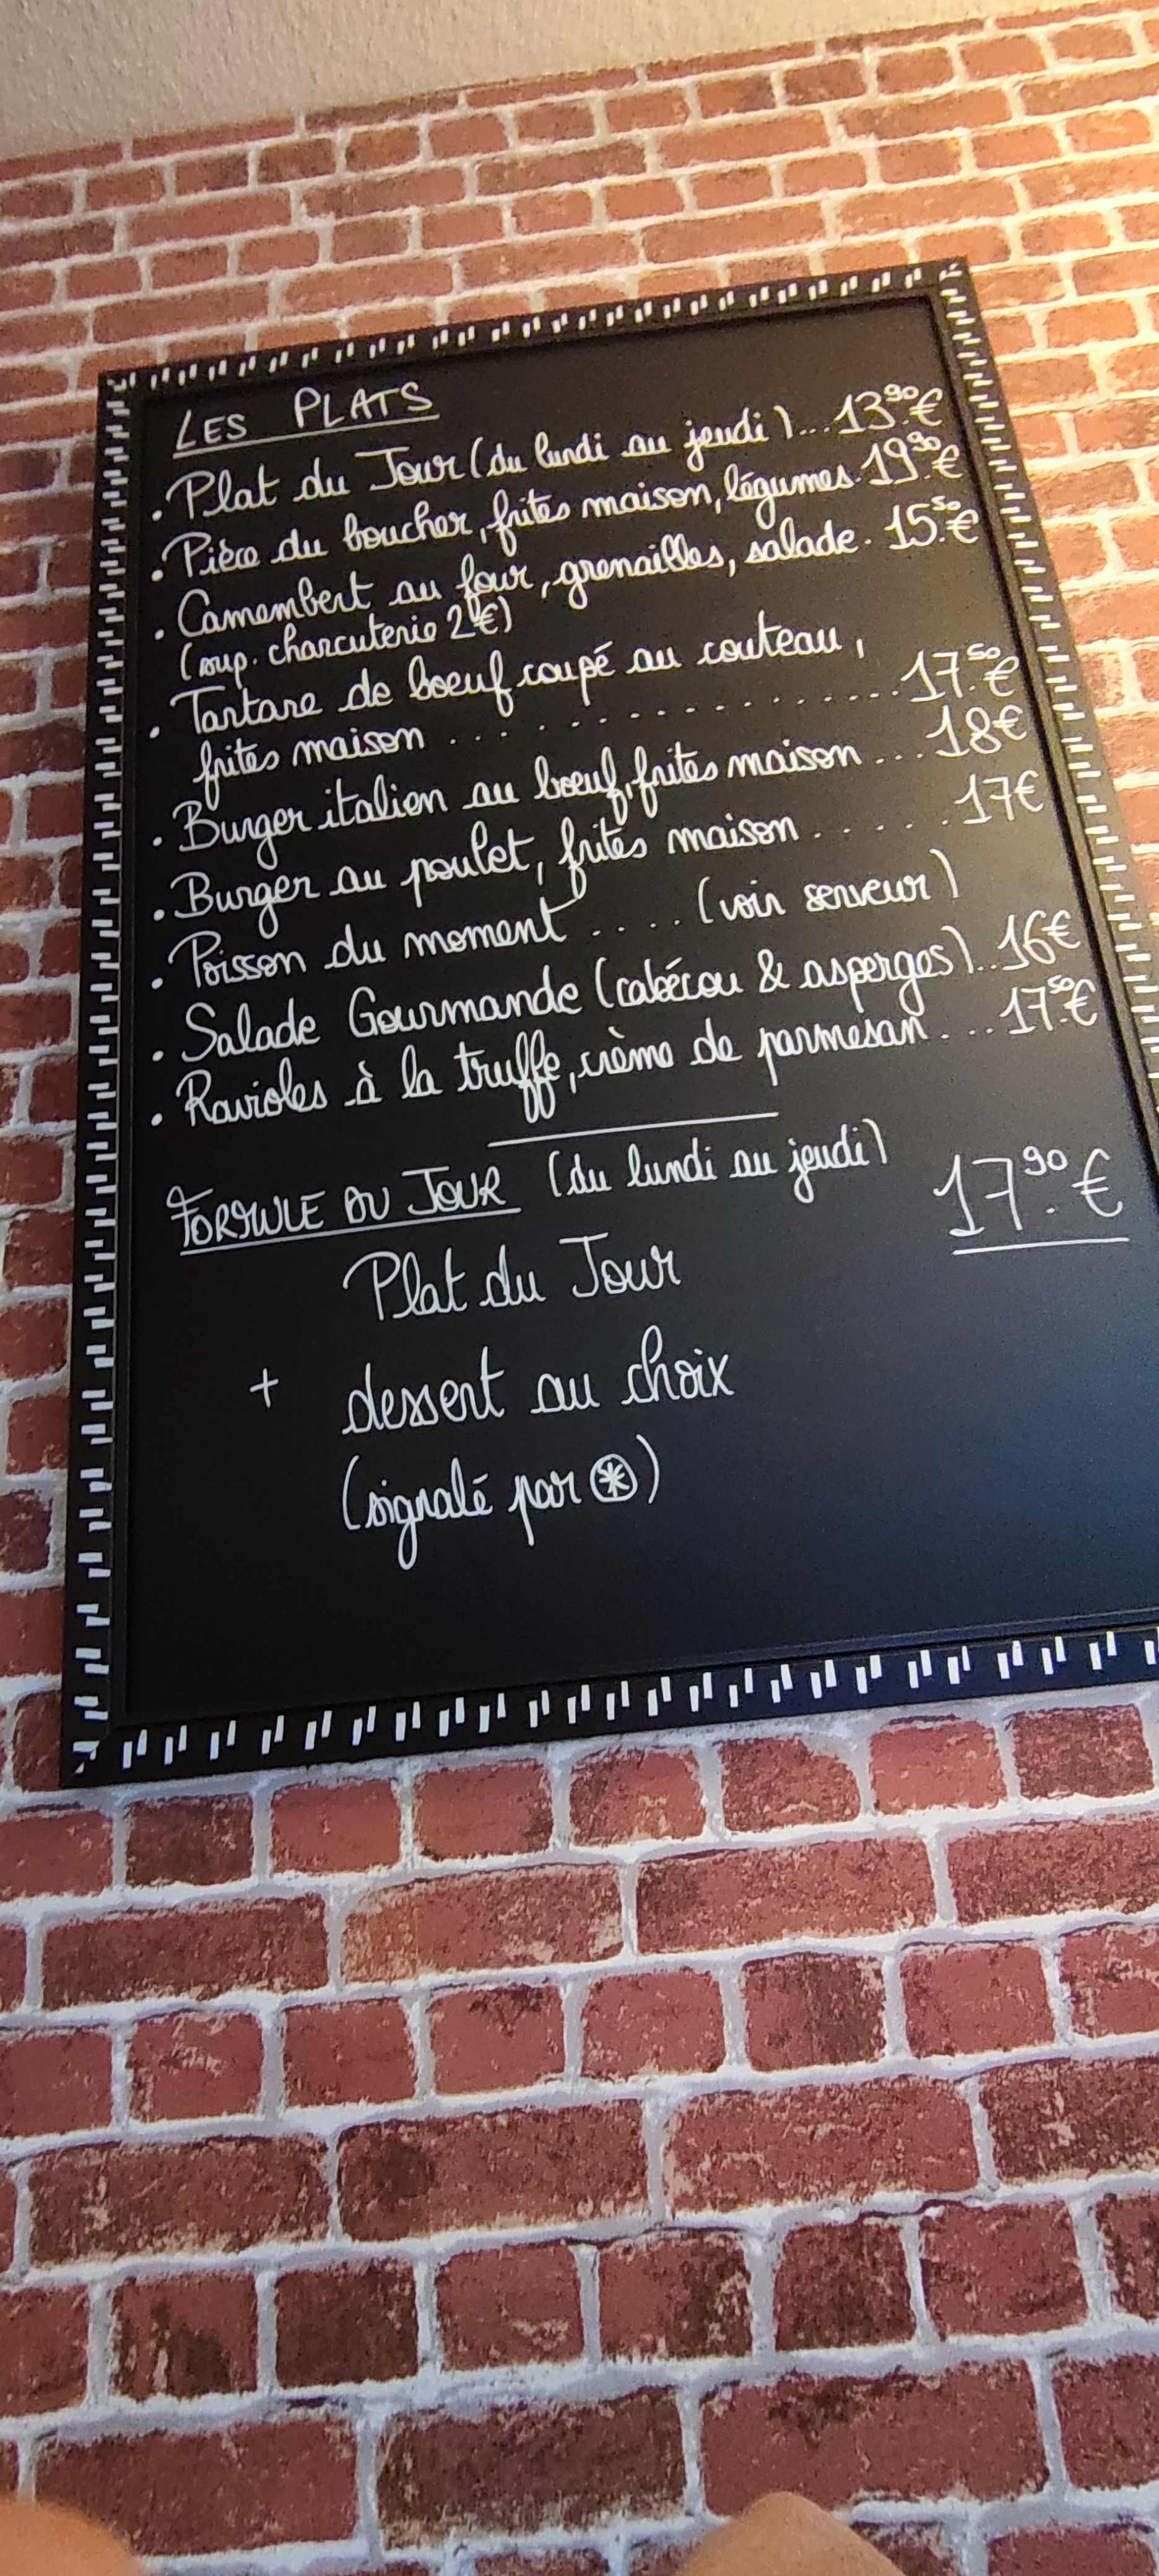 LES PLATS
. Plat du Jour (du lundi au jeudi)...13.90€
. Pièce du boucher, frites maison, légumes.19.90€
. Camembert au four, grenailles, salade. 15.50€
(sup. charcuterie 2€)
. Tartare de boeuf coupé au couteau,
frites maison ................17.50€
. Burger italien au boeuf, frites maison ...18€
. Burger au poulet, frites maison ......17€
. Poisson du moment .... (voir serveur)
. Salade Gourmande (cabécou & asperges)..16€
. Ravioles à la truffe, crème de parmesan ....17.50€
FORMULE DU JOUR (du lundi au jeudi) 17.90€
Plat du Jour
+ dessert au choix
(signalé par ⊛)